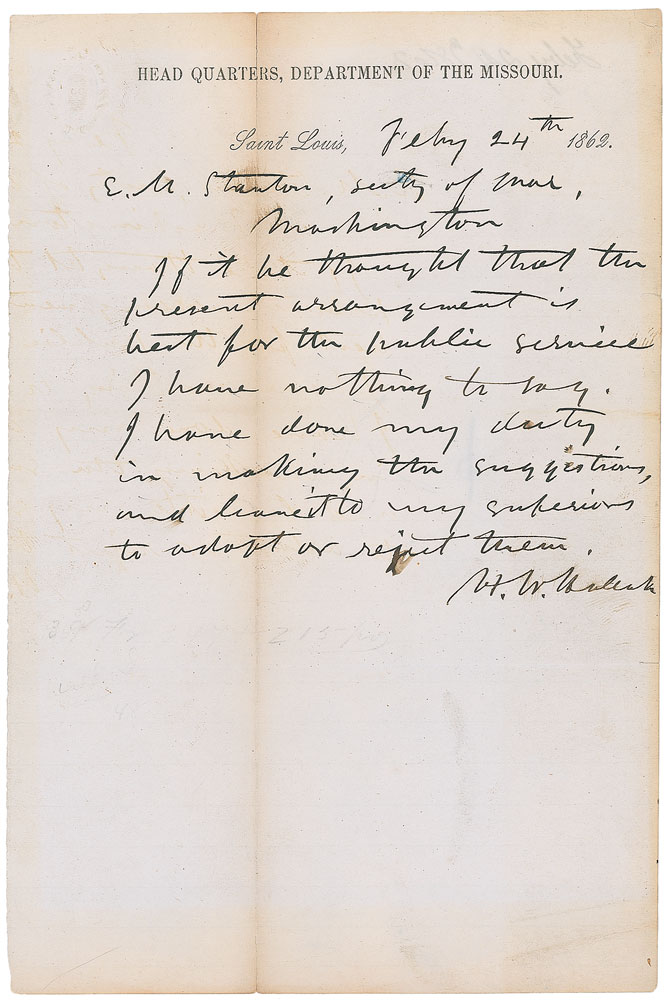 HEAD QUARTERS, DEPARTMENT OF THE MISSOURI.
Saint Louis, Feby 24th 1862.
E. M. Stanton, secty of War,
Washington
If it be thought that the
present arrangement is
best for the public service
I have nothing to say.
I have done my duty
in making the suggestions,
and leave it to my superiors
to adopt or reject them.
H. W. Halleck